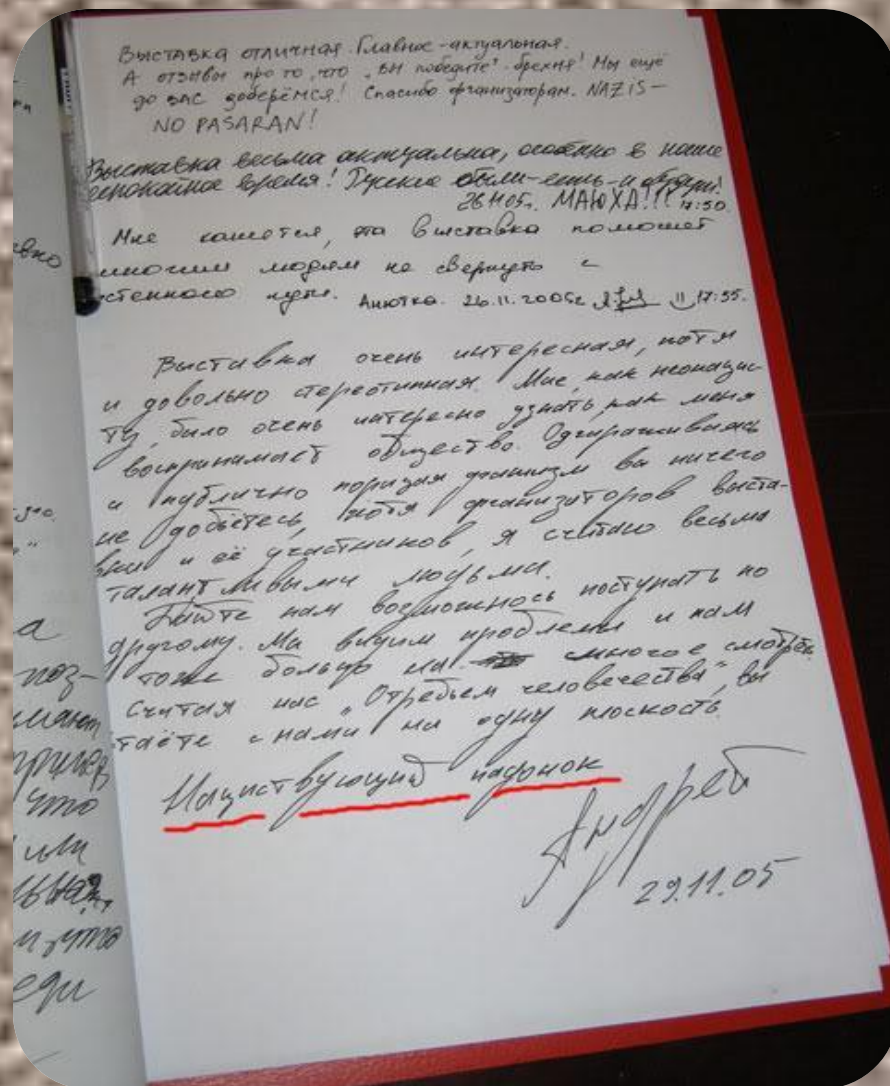 Выставка отличная. Главное - актуальная.
А отзывы про то, что „вы победите" - брехня! Мы ещё
до вас доберёмся! Спасибо организаторам. NAZIS —
NO PASARAN!
Выставка весьма актуальна, особенно в наше
еспокойное время! Русские были-есть-и будут!
26 Н05г. МАЮХА!!! 17:50.
Мне кажется, эта выставка поможет
многим людям не свернуть с
стенного пути. Анютка. 26.11.2005г 17:55.
Выставка очень интересная, хотя
и довольно стереотипная. Мне, как неонацис
ту, было очень интересно узнать как меня
воспринимает общество. Одгораживаясь
и публично порицая фашизм вы ничего
не добьётесь, хотя организаторов выста-
вки и её участников, я считаю весьма
талантливыми людьми.
Дайте нам возможнось поступать по
другому. Мы видим проблемы и нам
тоже больно на многое смотреть
Считая нас „Отребьем человечества", вы
таёте с нами на одну плоскость.
Нациствующий падонок
Андрей
29.11.05
а
поз-
что
или
еди